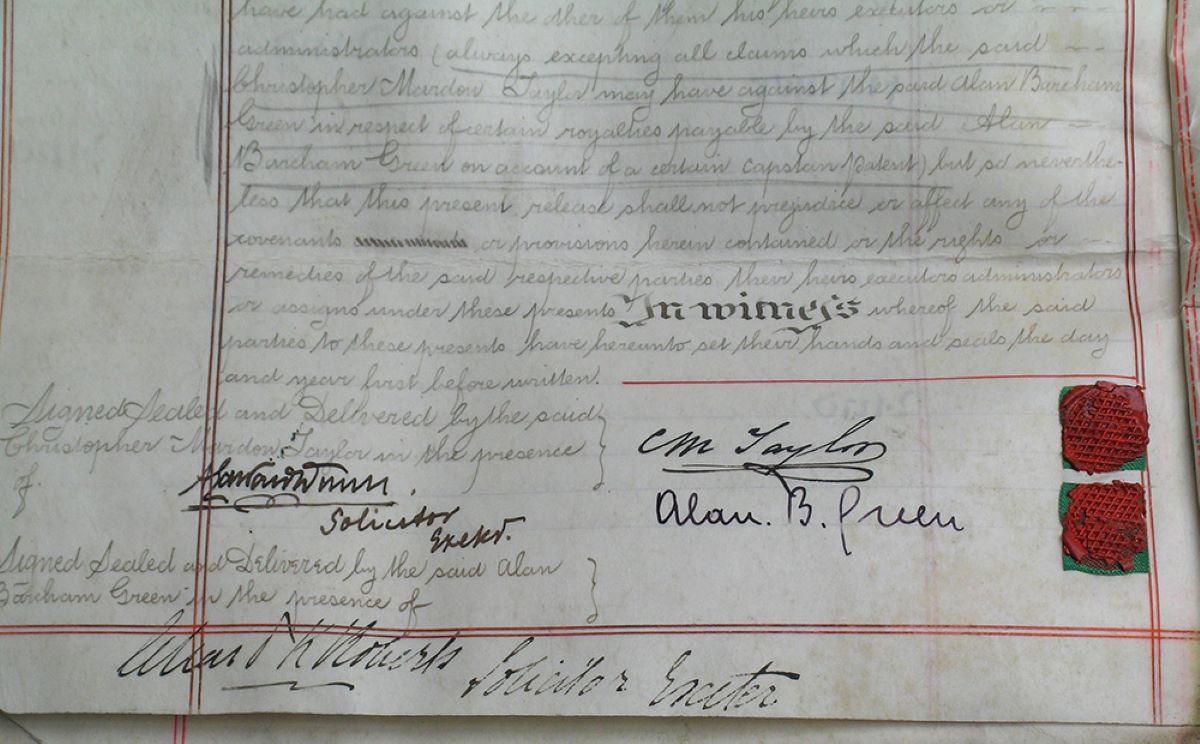 have had against the other of them his heirs executors or
administrators (always excepting all claims which the said
Christopher Mardon Taylor may have against the said Alan Barcham
Green in respect of certain royalties payable by the said Alan
Barcham Green on account of a certain capstan patent) but so neverthe-
less that this present release shall not prejudice or affect any of the
covenants or provisions herein contained or the rights or
remedies of the said respective parties their heirs executors administrators
or assigns under these presents In witness whereof the said
parties to these presents have hereunto set their hands and seals the day
and year first before written.
Signed Sealed and Delivered by the said
Christopher Mardon Taylor in the presence
of
Solicitor
CM Taylor
Alan. B. Green
Signed Sealed and Delivered by the said Alan
Barcham Green in the presence of
Roberts Solicitor Exeter